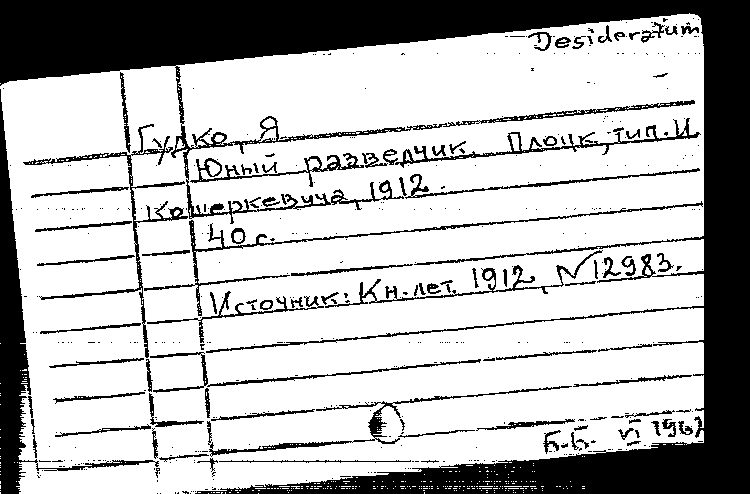 Desideratum
Гудко, Я
Юный разведчик. Плоцк, тип. И
Кошеркевича, 1912.
40 с.
Источник: Кн. лет. 1912, №12983.
Б.-Б. VI 1967